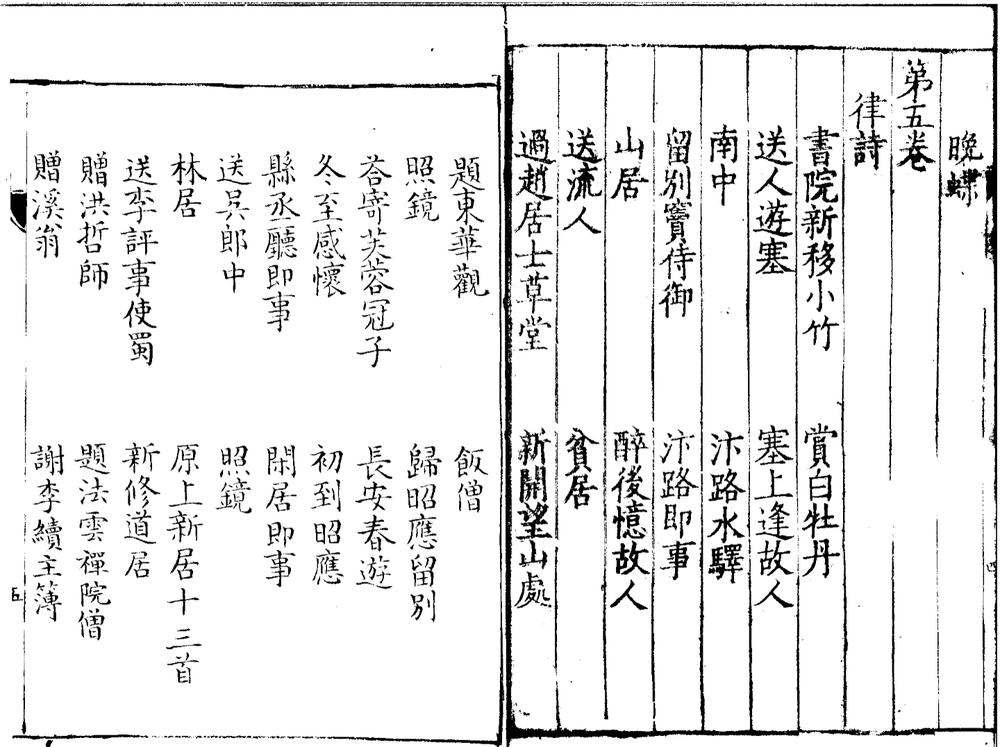 晚蝶
第五卷
律詩
書院新移小竹 賞白牡丹
送人遊塞 塞上逢故人
南中 汴路水驛
留別竇侍御 汴路即事
山居 醉後憶故人
送流人 貧居
過趙居士草堂 新開望山處
四
題東華觀 飯僧
照鏡 歸昭應留別
荅寄芙蓉冠子 長安春遊
冬至感懷 初到昭應
縣丞廳即事 閑居即事
送吳郎中 照鏡
林居 原上新居十三首
送李評事使蜀 新修道居
贈洪哲師 題法雲禪院僧
贈溪翁 謝李續主簿
五